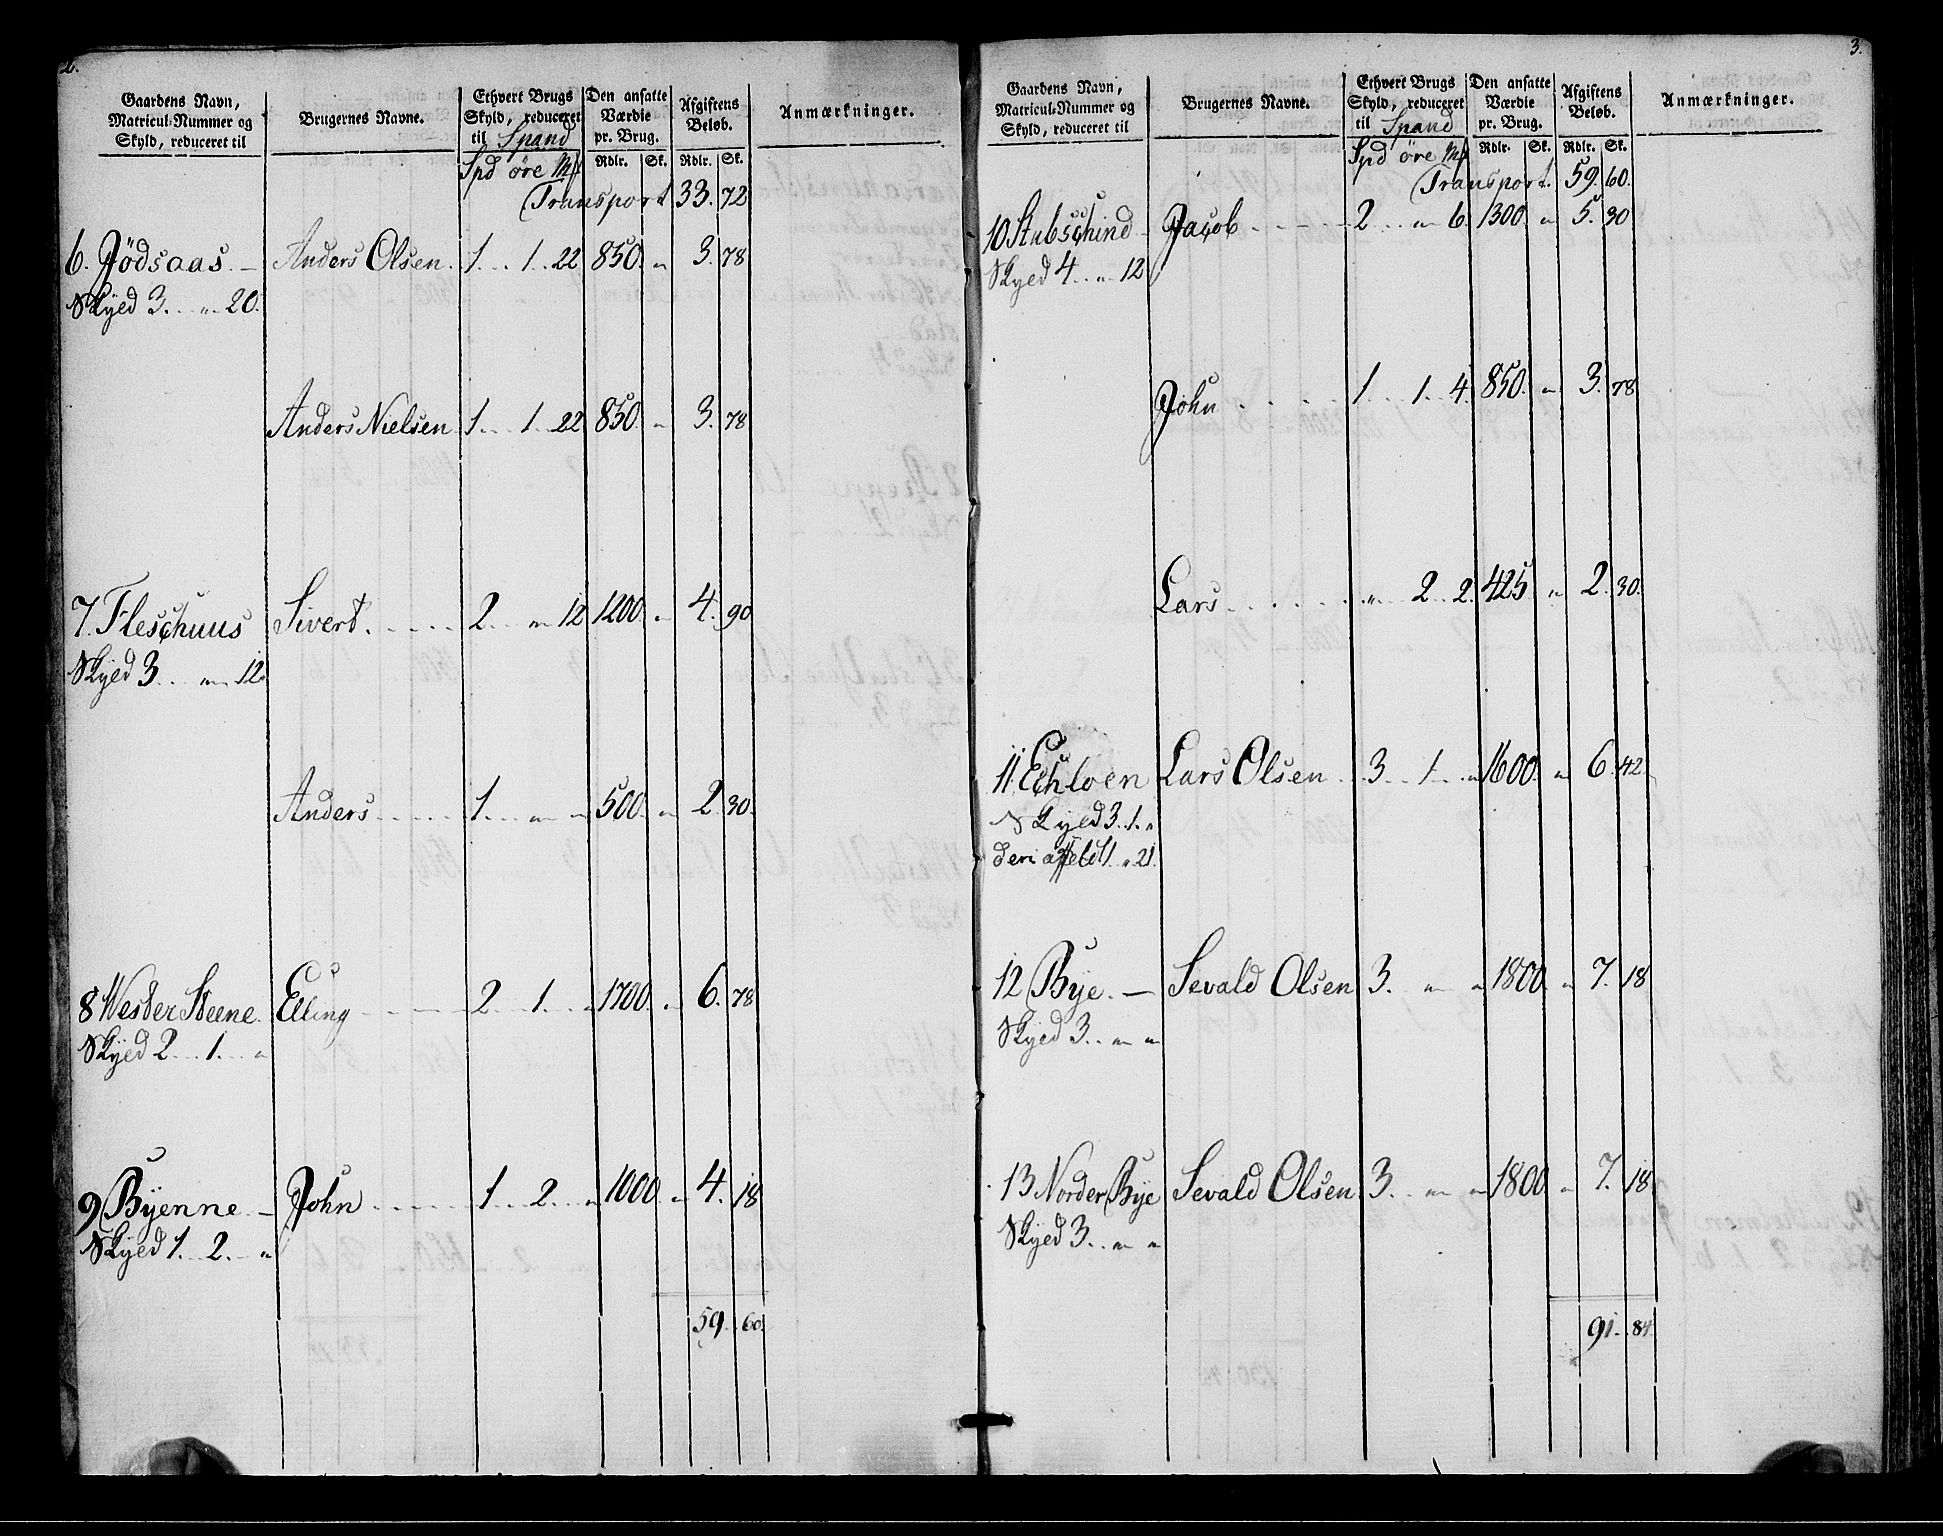 2.
Gaardens Navn, Matricul-Nummer og Skyld, reduceret til
Brugernes Navne.
Ethvert Brugs Skyld, reduceret til Spand
Den ansatte Værdie pr. Brug.
Afgiftens Beløb.
Anmærkninger.
Spd øre Mk Rdlr. Sk. Rdlr. Sk.
Transport 33. 72
6. Jödsaas. — Anders Olsen. 1. . 1. 22 850. " 3. 78
Skyed 3. . " 20.
Anders Nielsen 1. . 1. 22 850. " 3. 78
7. Fleschuus Sivert. . . . . 2. . " 12 1200. " 4. 90
Skyed 3. . " 12.
Anders . . . . . 1. . " " 500. " 2. 30.
8 Wester Steene. Elling . . . . 2. . 1. . " 1700. " 6. 78
Skyed 2. . 1. . "
9 Byenne. — John . . . . . 1. . 2. . " 1000. " 4. 18
Skyed 1. . 2. . "
59. 60.
3.
Gaardens Navn, Matricul-Nummer og Skyld, reduceret til
Brugernes Navne.
Ethvert Brugs Skyld, reduceret til Spand
Den ansatte Værdie pr. Brug.
Afgiftens Beløb.
Anmærkninger.
Spd øre Mk Rdlr. Sk. Rdlr. Sk.
Transport. 59. 60.
10 Stubschind Jacob . . . . 2. . " 6. 1300. " 5. 30
Skyed 4. . " 12
John . . . . . 1. . 1. 4. 850. " 3. 78
Lars . . . . . " 2. 2. 425 " 2. 30.
11. Echloen Lars Olsen . . 3. . 1. . " 1600. " 6. 42.
Skyed 3. 1. "
deri affeldt 1. " 21.
12 Bye. — Sevald Olsen 3. . " " 1800. " 7. 18
Skyed 3. . " "
13 Norder Bye Sevald Olsen 3. . " " 1800 " 7. 18
Skyed 3. . " "
91. 84.